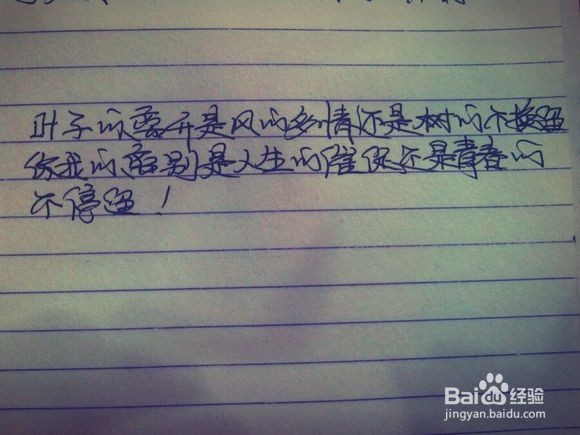 叶子的离开是风的多情还是树的不换留
你我的离别是人生的催促还是青春的
不停留！
Baidu经验
jingyan.baidu.com